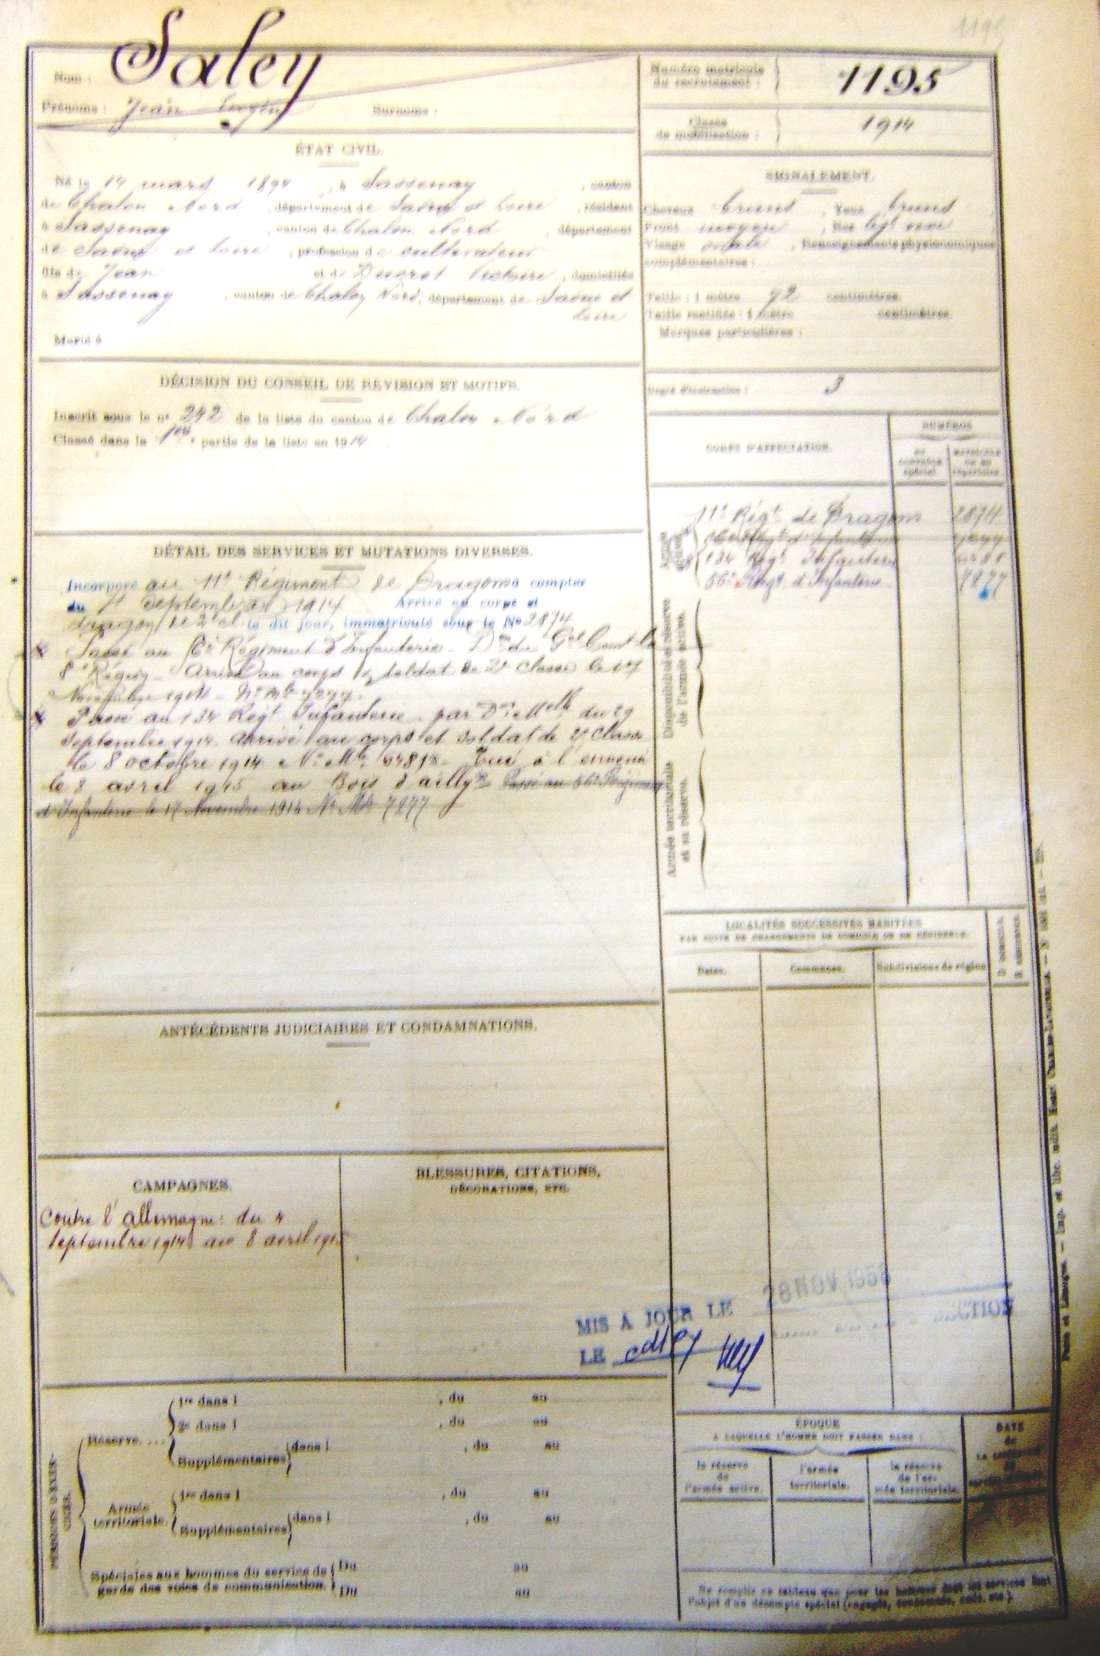 1195
Nom : Saley
Prénoms : Jean Eugène Surnoms :
Numéro matricule du recrutement : 1195
Classe de mobilisation : 1914
ÉTAT CIVIL.
Né le 14 mars 1894, à Sassenay, canton
de Chalon Nord, département de Saône et Loire, résidant
à Sassenay, canton de Chalon Nord, département
de Saône et Loire, profession de cultivateur
fils de Jean et de Victoire, domiciliés
à Sassenay, canton de Chalon Nord, département de Saône et
Loire
Marié à
SIGNALEMENT.
Cheveux bruns, Yeux bruns
Front moyen, Nez
Visage ovale, Renseignements physionomiques
complémentaires :
Taille : 1 mètre 72 centimètres.
Taille rectifiée : 1 mètre centimètres.
Marques particulières :
Degré d'instruction : 3
DÉCISION DU CONSEIL DE RÉVISION ET MOTIFS.
Inscrit sous le n° 242 de la liste du canton de Chalon Nord
Classé dans la 1re partie de la liste en 1914
CORPS D'AFFECTATION.
NUMÉROS
AU CONTRÔLE spécial.
MATRICULE OU AU répertoire.
Armée active.
11e Régt de Dragons 2874
Régt d'Infanterie
134 Régt Infanterie
56e Régt d'Infanterie 7277
Disponibilité et réserve de l'armée active.
Armée territoriale et sa réserve.
DÉTAIL DES SERVICES ET MUTATIONS DIVERSES.
Incorporé au 11e Régiment de Dragons à compter
du 4 septembre 1914 Arrivé au corps et
dragon de 2e cl. le dit jour, immatriculé sous le No 2874
Passé au Régiment d'Infanterie Don du Gal Comt la
8e Région Arrivé au corps et soldat de 2e classe le 17
Novembre 1914 No Mle 7277.
Passé au 134 Régt Infanterie par Don Mlle du 29
septembre 1914. Arrivé au corps et soldat de 2e classe
le 8 octobre 1914 No Mle Tué à l'ennemi
le 8 avril 1915 au Bois d'ailly Passé au 56e Régiment
d'Infanterie le 17 Novembre 1914 No Mle 7277
LOCALITÉS SUCCESSIVES HABITÉES
PAR SUITE DE CHANGEMENTS DE DOMICILE OU DE RÉSIDENCE.
Dates. Communes. Subdivisions de région. D. DOMICILE. R. RÉSIDENCE.
ANTÉCÉDENTS JUDICIAIRES ET CONDAMNATIONS.
CAMPAGNES.
Contre l'allemagne : du 4
septembre 1914 au 8 avril 1915
BLESSURES, CITATIONS,
DÉCORATIONS, ETC.
MIS A JOUR LE 28 NOV 1956
LE
PÉRIODES D'EXERCICES.
Réserve....
1re dans l , du au
2e dans l , du au
Supplémentaires dans l , du au
Armée territoriale.
1re dans l , du au
Supplémentaires dans l , du au
Spéciales aux hommes du service de
garde des voies de communication.
Du au
Du au
ÉPOQUE
A LAQUELLE L'HOMME DOIT PASSER DANS :
la réserve de l'armée active.
l'armée territoriale.
la réserve de l'armée territoriale.
DATE de
Ne remplir ce tableau que pour les hommes dont les services font
l'objet d'un décompte spécial (engagés, condamnés, omis, etc.).
Paris et Limoges. — Imp. et libr. milit. Henri CHARLES-LAVAUZELLE.